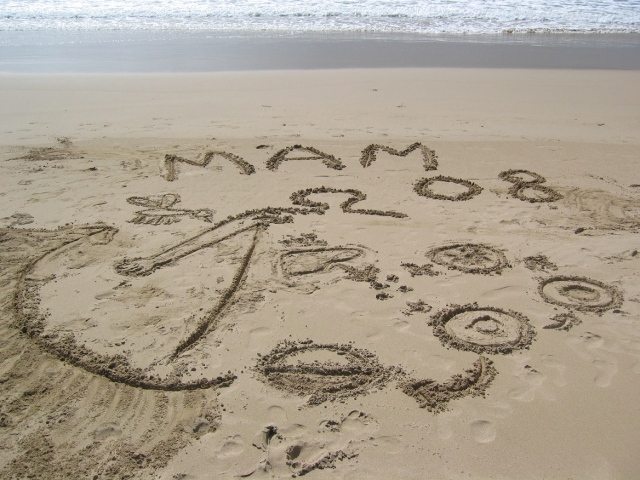 MAM
208